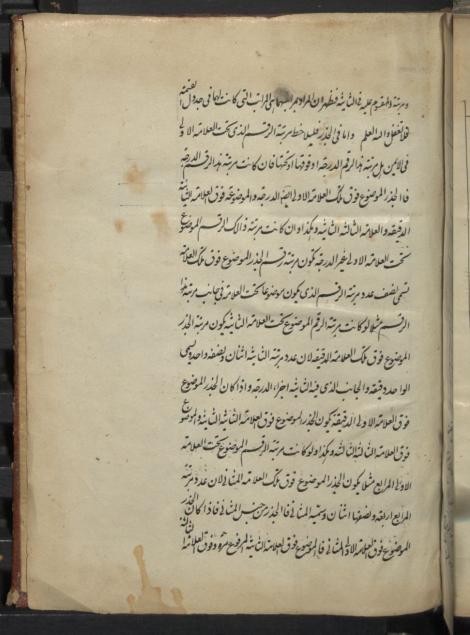 ومرتبة المقسوم عليه فى الثانية فظهر ان المراد بمراتبهما هى المراتب التى كانت لهما فى جدول القسمة
فلا تغفل والله اعلم واما فى الجذر فليلاحظ مرتبة الرقم الذى تحت العلامة الاولى
فى الايمن هل مرتبة هذا الرقم الدرجة او فوقها او تحتها فان كانت مرتبة هذا الرقم الدرجة
فالجذر الموضوع فوق تلك العلامة الاولى ايضا الدرجة والموضوع فوق العلامة الثانية
الدقيقة والعلامة الثالثة الثانية وهكذا وان كانت مرتبة ذلك الرقم الموضوع
تحت العلامة الاولى غير الدرجة يكون مرتبة رقم الجذر الموضوع فوق تلك العلامة
سمى نصف عدد مرتبة الرقم الذى يكون موضوعا تحت العلامة فى جانب مرتبة هذا
الرقم مثلا لو كانت مرتبة الرقم الموضوع تحت العلامة الثانية يكون مرتبة الجذر
الموضوع فوق تلك العلامة الدقيقة لان عدد مرتبة الثانية اثنان ونصفه واحد وسمى
الواحد دقيقة والجانب الذى فيه الثانية اجزاء الدرجة واذا كان الجذر الموضوع
فوق العلامة الاولى الدقيقة يكون الجذر الموضوع فوق العلامة الثانية الثانية والموضوع
فوق العلامة الثالثة الثالثة وهكذا ولو كانت مرتبة الرقم الموضوع تحت العلامة
الاولى المرابع مثلا يكون الجذر الموضوع فوق تلك العلامة المثانى لان عدد مرتبة
المرابع اربعة ونصفها اثنان وسميه المثانى فالجذر من جنس المثانى فاذا كان الجذر
الموضوع فوق العلامة الاولى المثانى فالموضوع فوق العلامة الثانية المرفوع مرة وفوق العلامة الثالثة